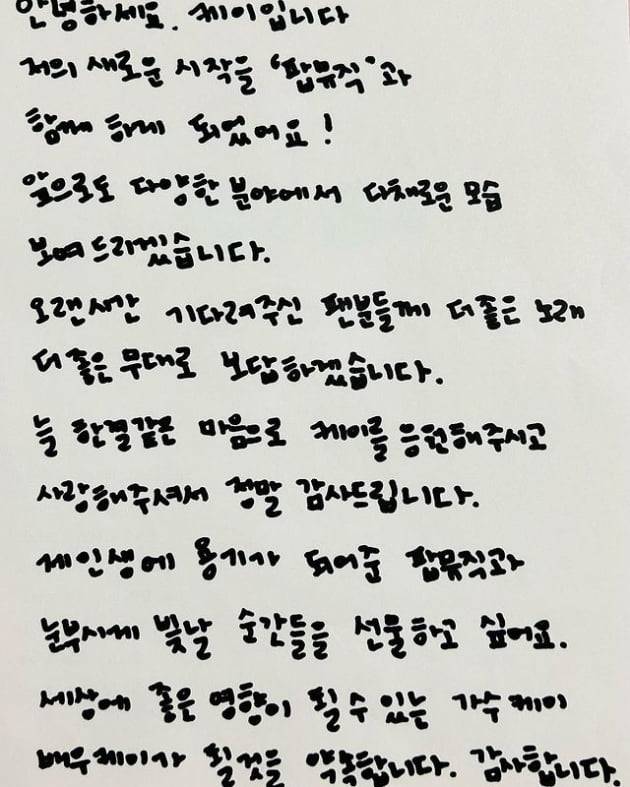 안녕하세요. 케이입니다
저의 새로운 시작을 '팝뮤직'과
함께 하게 되었어요!
앞으로도 다양한 분야에서 다채로운 모습
보여드리겠습니다.
오랜시간 기다려주신 팬분들께 더 좋은 노래
더 좋은 무대로 보답하겠습니다.
늘 한결같은 마음으로 케이를 응원해주시고
사랑해주셔서 정말 감사드립니다.
제 인생에 용기가 되어준 팝뮤직과
눈부시게 빛날 순간들을 선물하고 싶어요.
세상에 좋은 영향이 될 수 있는 가수 케이
배우 케이가 될 것을 약속합니다. 감사합니다.